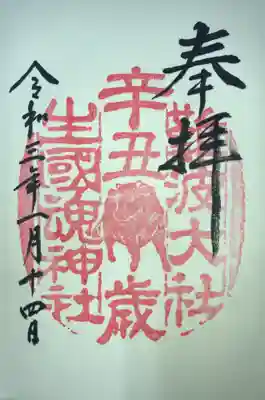 奉拝
難波大社
辛丑歳
生國魂神社
令和三年一月十四日